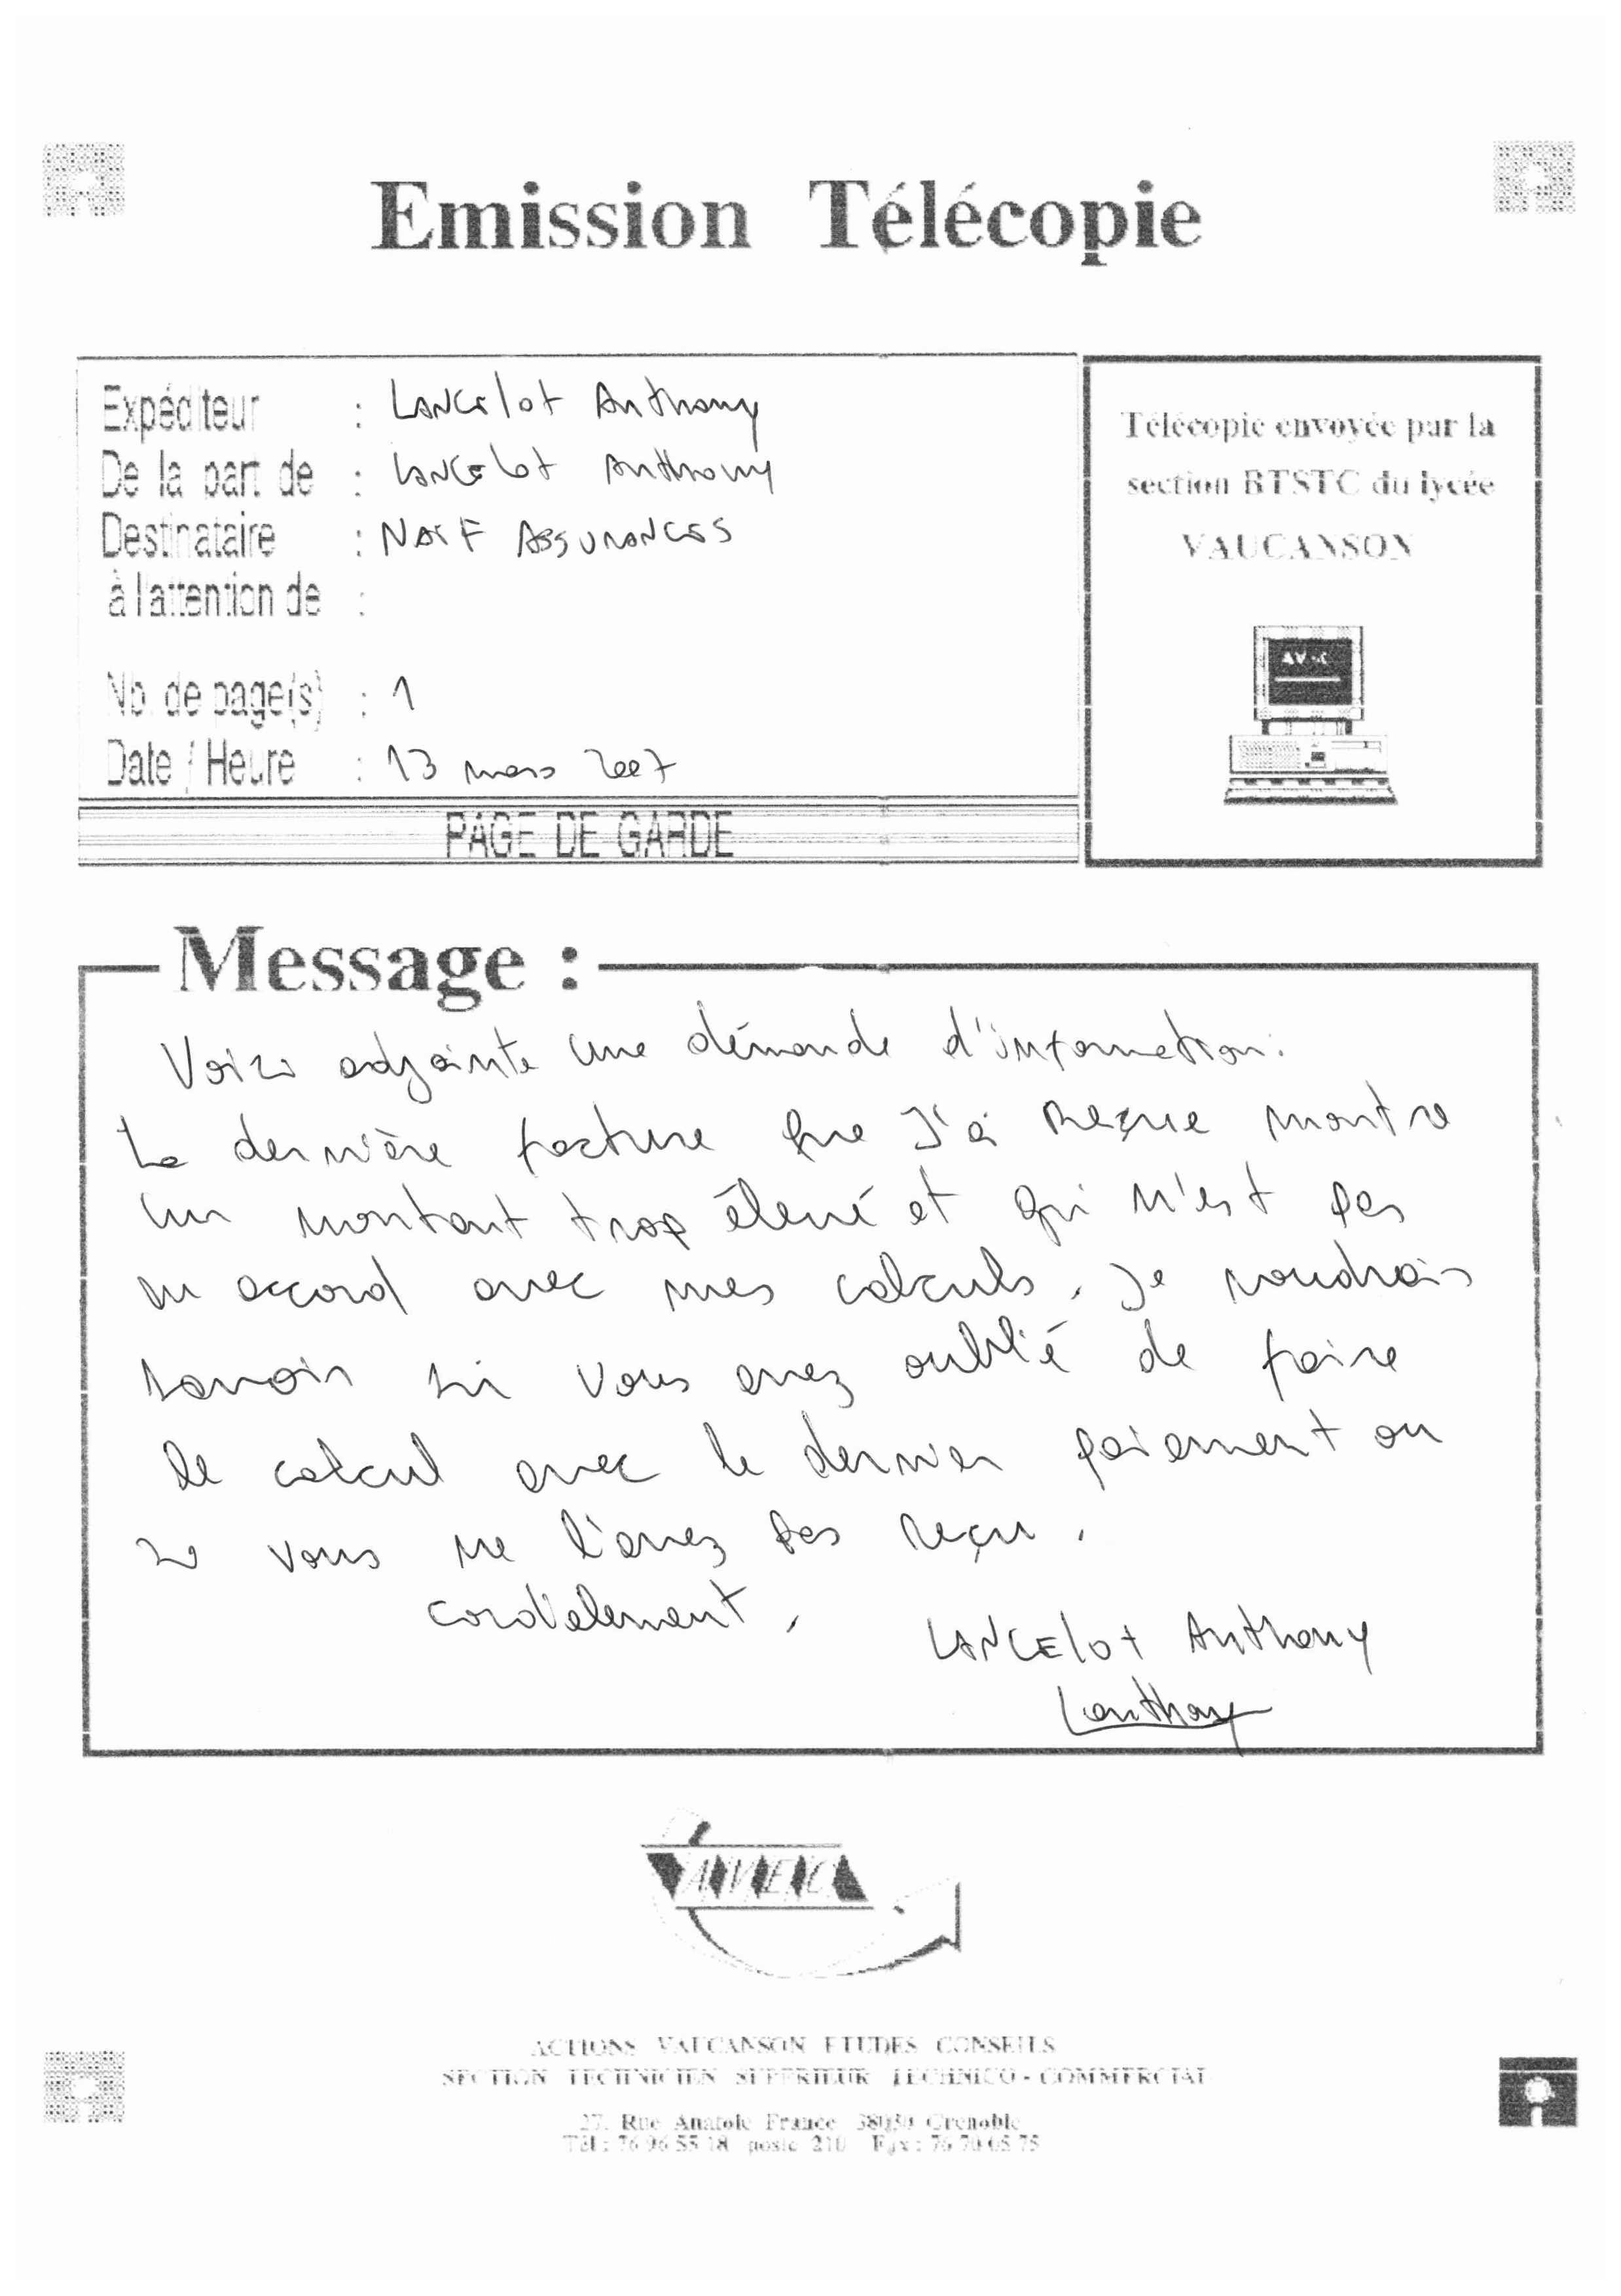 Emission Télécopie
Expéditeur : Lancelot Anthony
De la part de : Lancelot Anthony
Destinataire : NAIF ASSURANCES
à l'attention de :
Nb. de page(s) : 1
Date / Heure : 13 mars 2007
PAGE DE GARDE
Télécopie envoyée par la
section BTSTC du lycée
VAUCANSON
AVEC
Message :
Voici adjointe une démande d'information.
La dernière facture que j'ai reçue montre
un montant trop élevé et qui n'est pas
en accord avec mes calculs. Je voudrais
savoir si vous avez oublié de faire
le calcul avec le dernier paiement ou
si vous ne l'avez pas reçu.
cordialement,
LANCELOT Anthony
Lanthony
AVEC
ACTIONS VAUCANSON ETUDES CONSEILS
SECTION TECHNICIEN SUPERIEUR TECHNICO - COMMERCIAL
27, Rue Anatole France 38030 Grenoble
Tél : 76 96 55 18 poste 210 Fax : 76 70 05 75